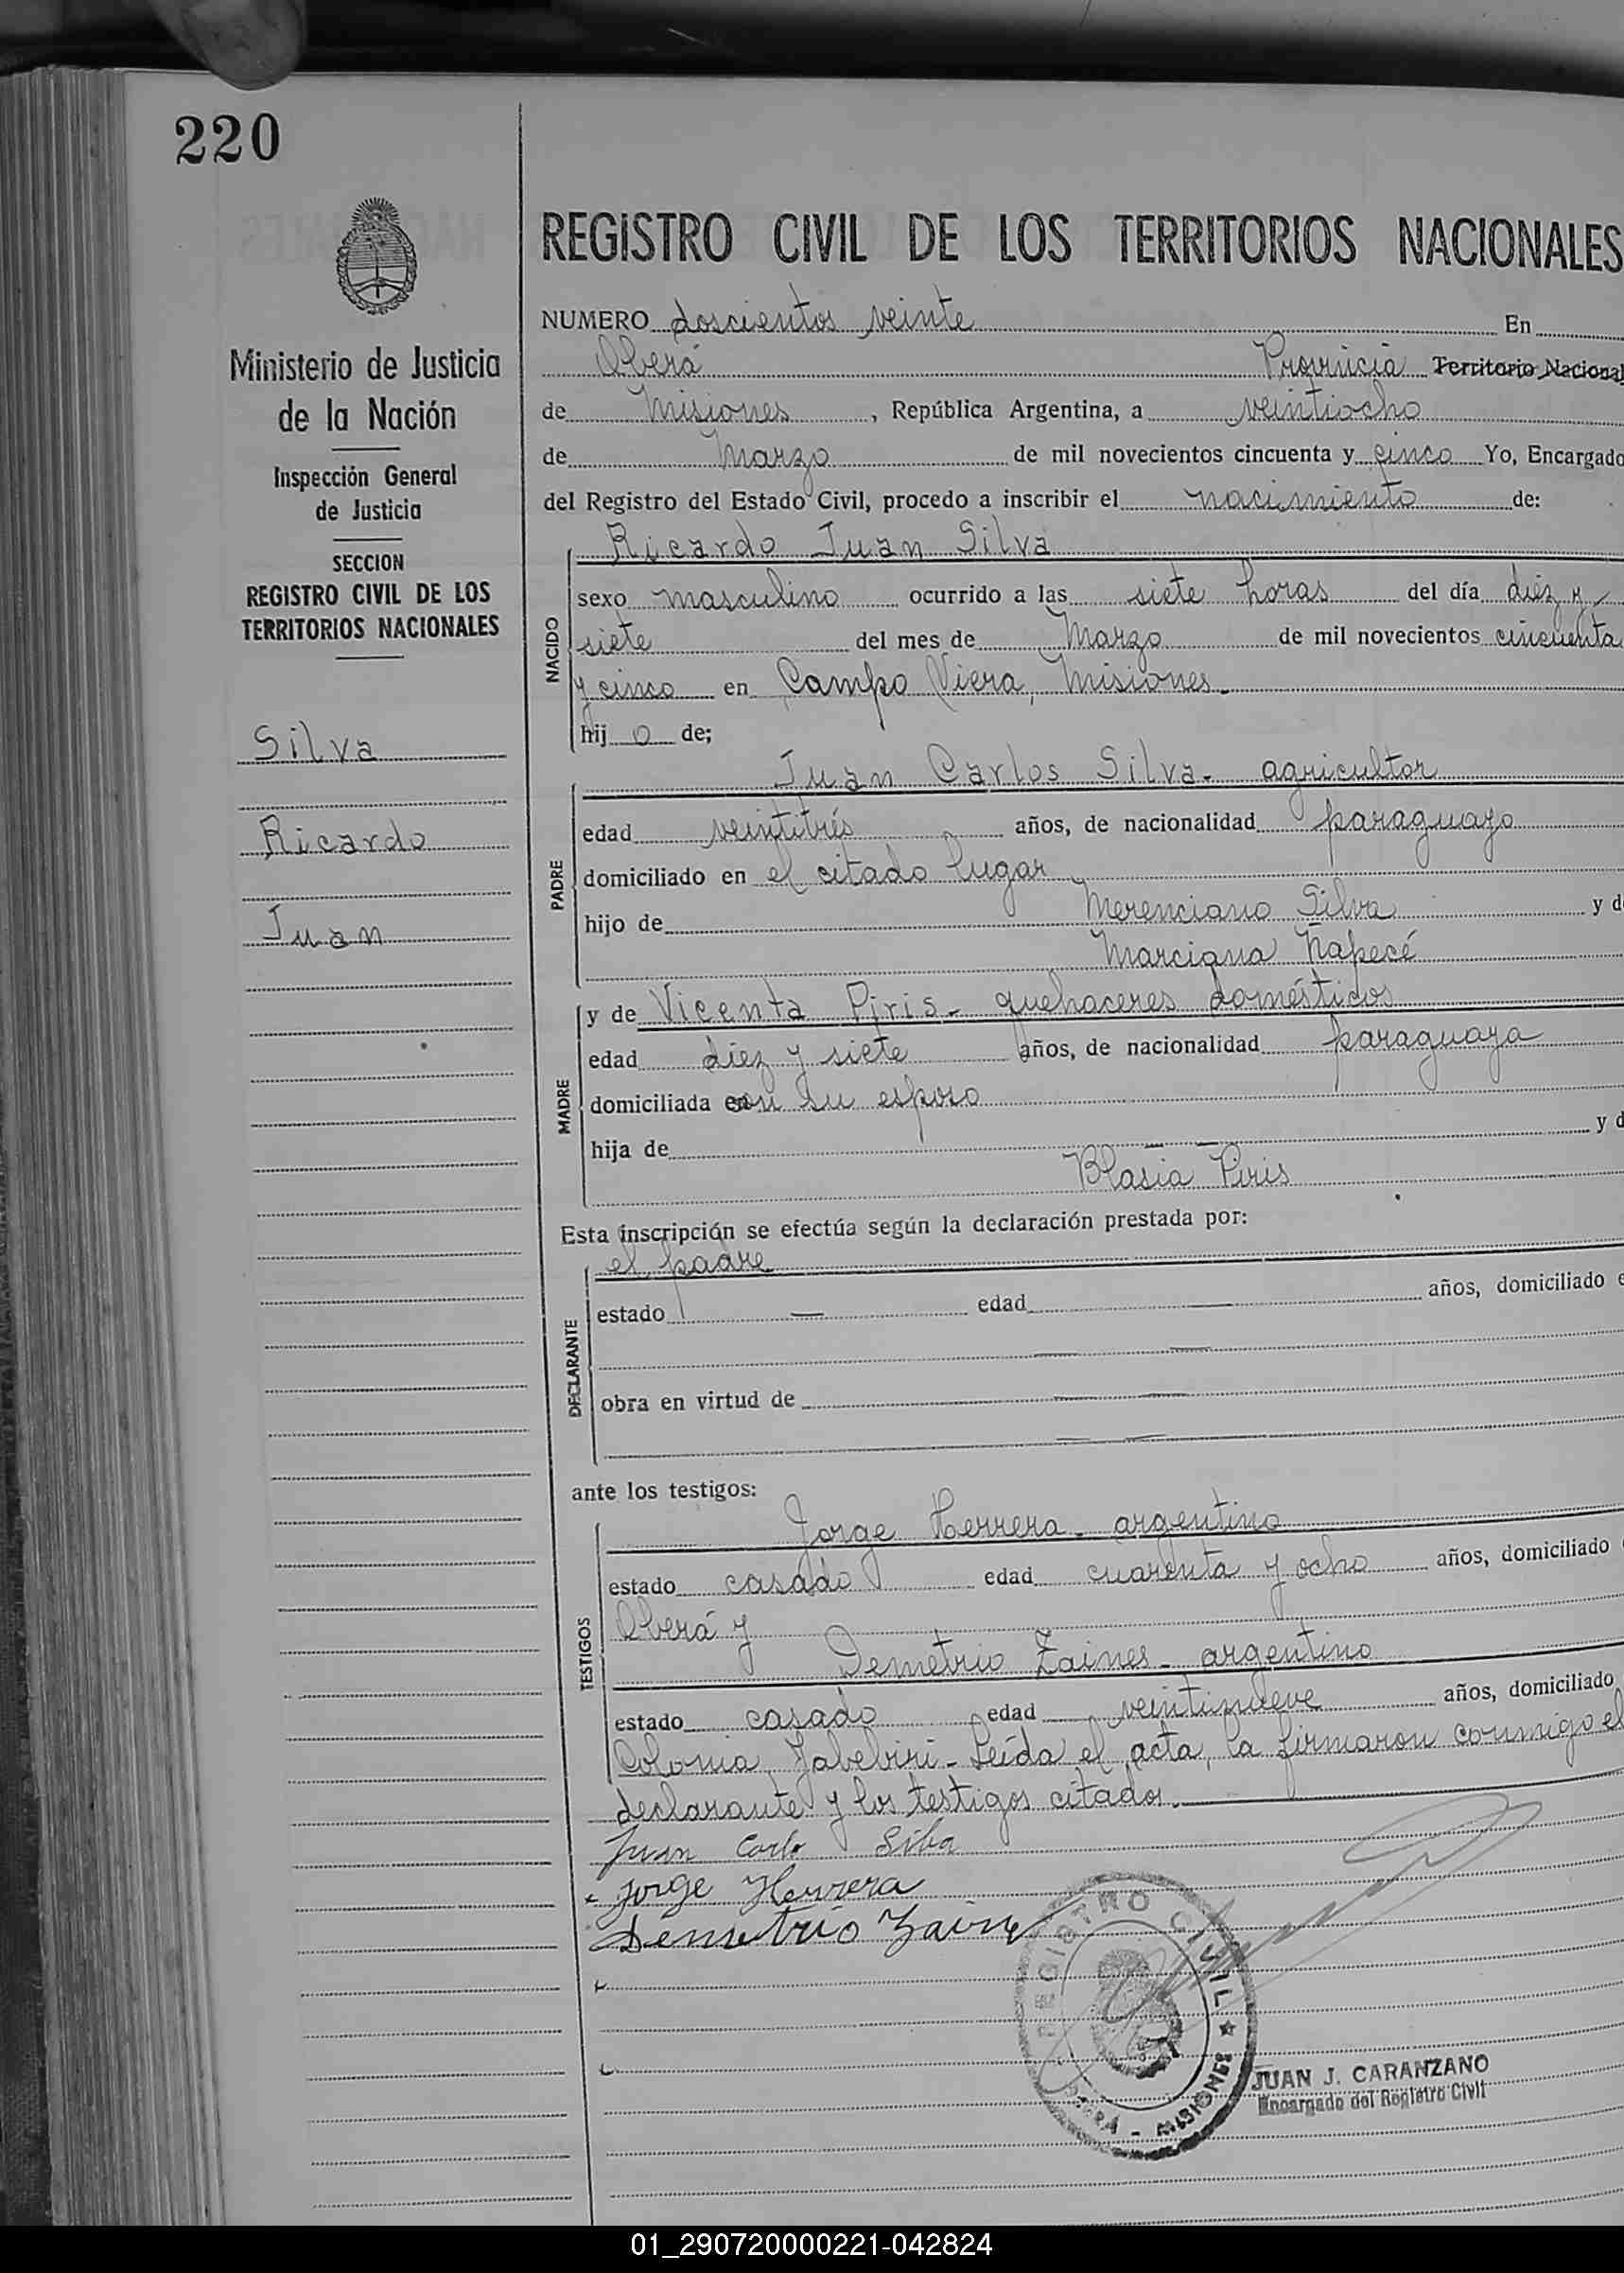 220
REGISTRO CIVIL DE LOS TERRITORIOS NACIONALES
Ministerio de Justicia
de la Nación
Inspección General
de Justicia
SECCION
REGISTRO CIVIL DE LOS
TERRITORIOS NACIONALES
Silva
Ricardo
Juan
NUMERO doscientos veinte En
Oberá Provincia Territorio Nacional
de Misiones, República Argentina, a veintiocho
de Marzo de mil novecientos cincuenta y cinco Yo, Encargado
del Registro del Estado Civil, procedo a inscribir el nacimiento de:
NACIDO
Ricardo Juan Silva
sexo masculino ocurrido a las siete horas del día diéz y
siete del mes de Marzo de mil novecientos cincuenta
y cinco en Campo Viera, Misiones.
hijo de;
PADRE
Juan Carlos Silva - agricultor
edad veintitrés años, de nacionalidad paraguayo
domiciliado en el citado lugar
hijo de Merenciano Silva y d
Marciana Ñapecé
MADRE
y de Vicenta Piris - quehaceres domésticos
edad diez y siete años, de nacionalidad paraguaya
domiciliada con su esposo
hija de y d
Blasia Piris
Esta inscripción se efectúa según la declaración prestada por:
DECLARANTE
el padre
estado — edad — años, domiciliado e
obra en virtud de
ante los testigos:
TESTIGOS
Jorge Herrera - argentino
estado casado edad cuarenta y ocho años, domiciliado
Oberá y
Demetrio Zaines - argentino
estado casado edad veintinueve años, domiciliado
Colonia Yabebiri - Leída el acta, la firmaron conmigo el
declarante y los testigos citados.
Juan Carlo Silba
Jorge Herrera
Demetrio Zaine
REGISTRO CIVIL ★
OBERÁ - MISIONES
JUAN J. CARANZANO
Encargado del Registro Civil
01_290720000221-042824